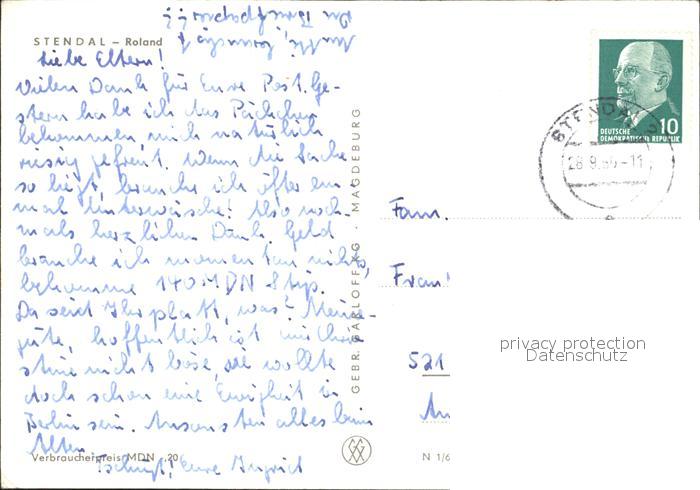 STENDAL – Roland
Liebe Eltern!
Vielen Dank für Eure Post. Ge-
stern habe ich das Päckchen
bekommen mich natürlich
riesig gefreut. Wenn die Sache
so liegt, brauche ich öfter ein-
mal Unterwäsche! Also noch-
mals herzlichen Dank. Geld
brauche ich momentan nichts,
bekomme 140 MDN Stip.
Da seid Ihr platt, was? Meine
güte, hoffentlich ist mir
nicht böse, sie wollte
doch schon eine Ewigkeit in
Berlin sein. Ansonsten alles beim
Alten.
Tschüß! Eure Ingrid
Verbraucherpreis MDN ,20
GEBR. GARLOFF KG · MAGDEBURG
DEUTSCHE
DEMOKRATISCHE REPUBLIK
10
STENDAL
28.9.66-11
Fam.
Frau
521
privacy protection
Datenschutz
N 1/6